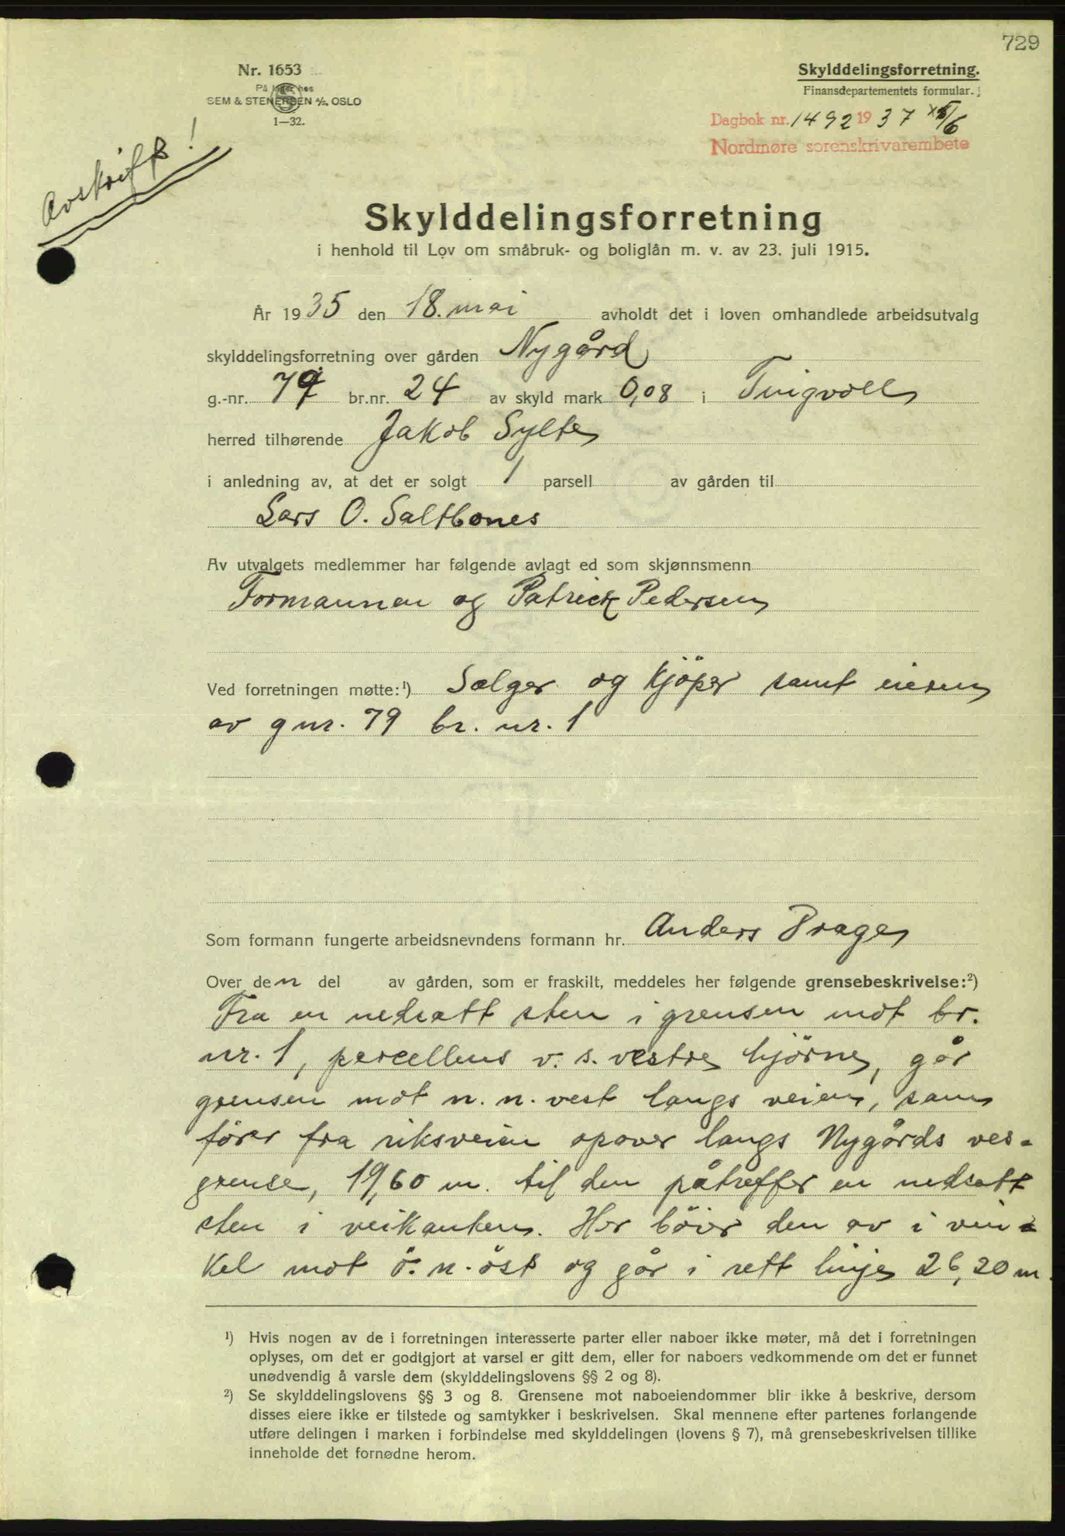 729
Nr. 1653
På lager hos
SEM & STENERSEN A/S, OSLO
1—32.
Skylddelingsforretning.
Finansdepartementets formular.
Dagbok nr. 1492 1937 5/6
Nordmøre sorenskrivarembete
Avskrift!
Skylddelingsforretning
i henhold til Lov om småbruk- og boliglån m. v. av 23. juli 1915.
År 1935 den 18. mai avholdt det i loven omhandlede arbeidsutvalg
skylddelingsforretning over gården Nygård
g.-nr. 79 br.nr. 24 av skyld mark 0,08 i Tingvoll
herred tilhørende Jakob Sylte
i anledning av, at det er solgt 1 parsell av gården til
Lars O. Saltbones
Av utvalgets medlemmer har følgende avlagt ed som skjønnsmenn
Formannen og Patrick Pedersen
Ved forretningen møtte:¹) Selger og kjöper samt eieren
av gnr. 79 br. nr. 1
Som formann fungerte arbeidsnevndens formann hr. Anders Prage
Over den del av gården, som er fraskilt, meddeles her følgende grensebeskrivelse:²)
Fra en nedsatt sten i grensen mot br.
nr. 1, percellens v. s. vestre hjörne, går
grensen mot n. n. vest langs veien, som
förer fra riksveien opover langs Nygårds ves-
grense, 19,60 m. til den påtreffer en nedsatt
sten i veikanten. Her böier den av i vin-
kel mot ö. n. öst og går i rett linje 26,20 m.
¹) Hvis nogen av de i forretningen interesserte parter eller naboer ikke møter, må det i forretningen
oplyses, om det er godtgjort at varsel er gitt dem, eller for naboers vedkommende om det er funnet
unødvendig å varsle dem (skylddelingslovens §§ 2 og 8).
²) Se skylddelingslovens §§ 3 og 8. Grensene mot naboeiendommer blir ikke å beskrive, dersom
disses eiere ikke er tilstede og samtykker i beskrivelsen. Skal mennene efter partenes forlangende
utføre delingen i marken i forbindelse med skylddelingen (lovens § 7), må grensebeskrivelsen tillike
inneholde det fornødne herom.